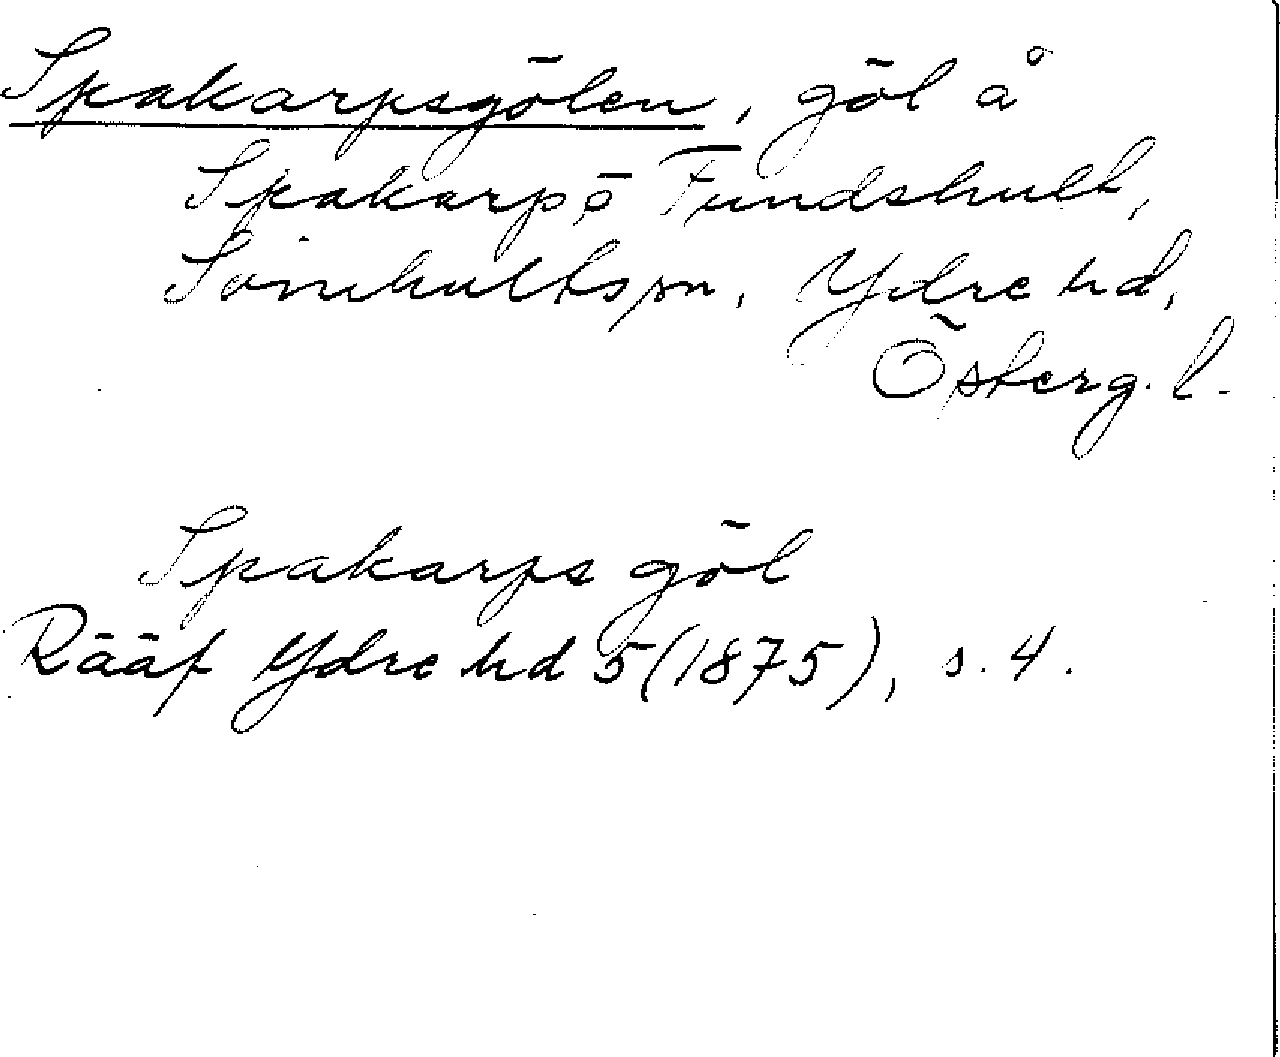 Spakarpsgölen, göl å
Spakarp, ö Fundshult,
Svinhults sn, Ydre hd,
Österg. l.
Spakarps göl
Rääf Ydre hd 5 (1875), s. 4.